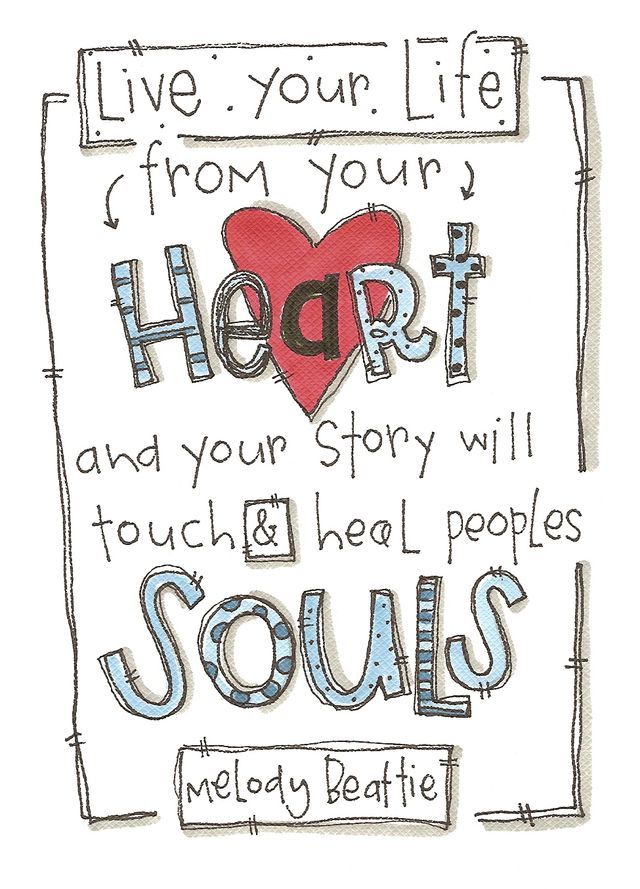 Live your Life
from your
HeaRt
and your Story will
touch & heaL peopLes
SouLS
meLody Beattie